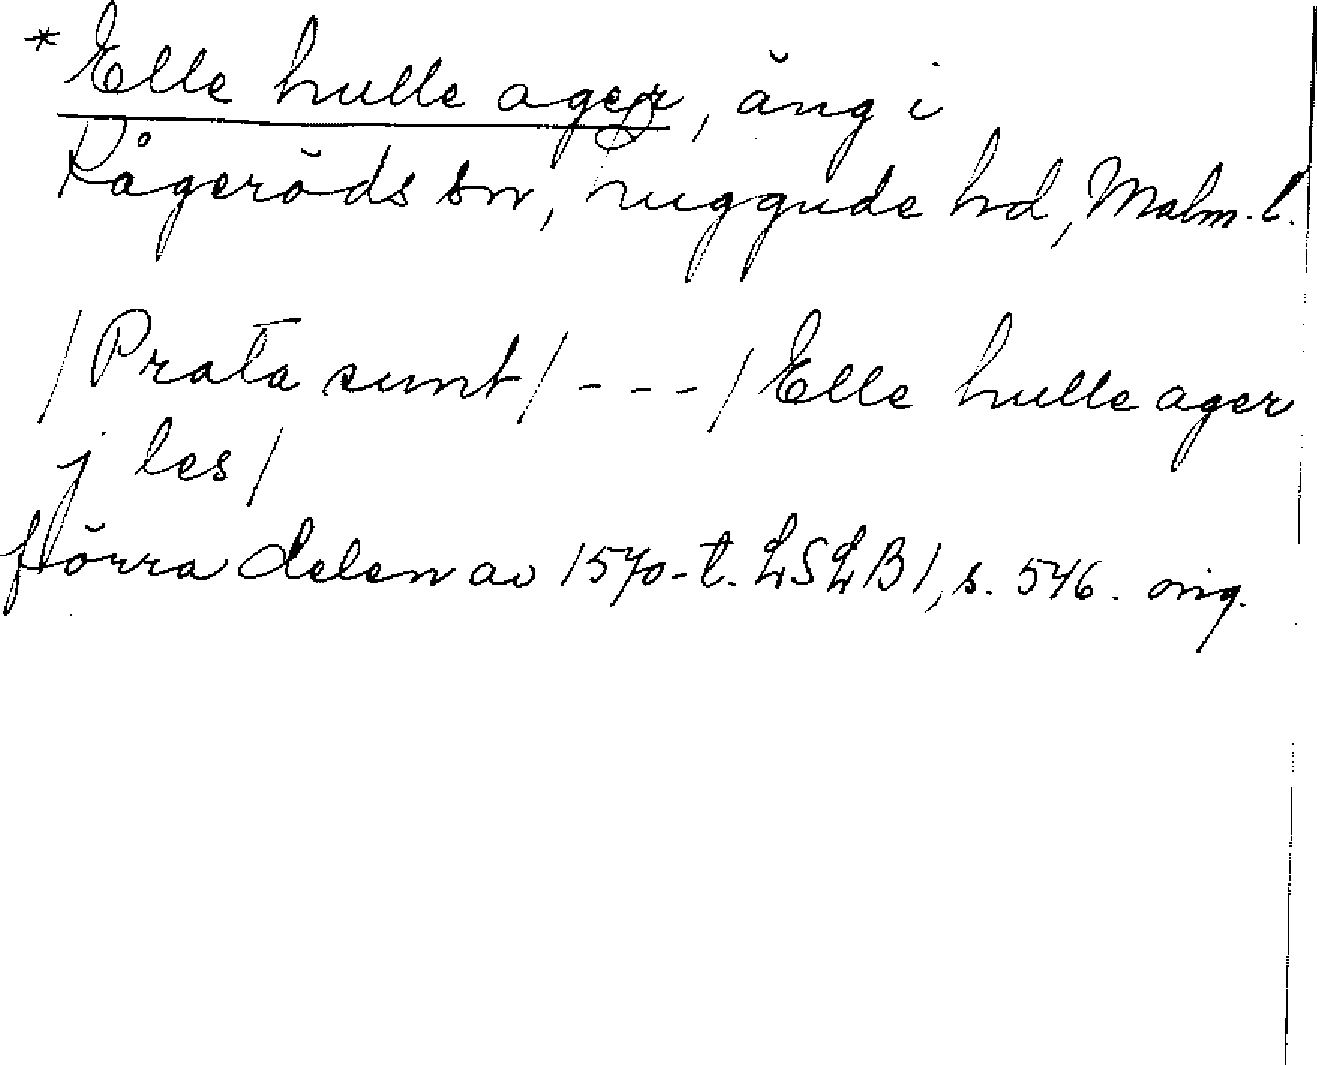 * Elle hulle ager, äng i
Rågeröds sn, Luggude hd, Malm. l.
/Prata sunt/ - - - / Elle hulle ager
j les/
förra delen av 1570-t. LSLB1, s. 546. orig.